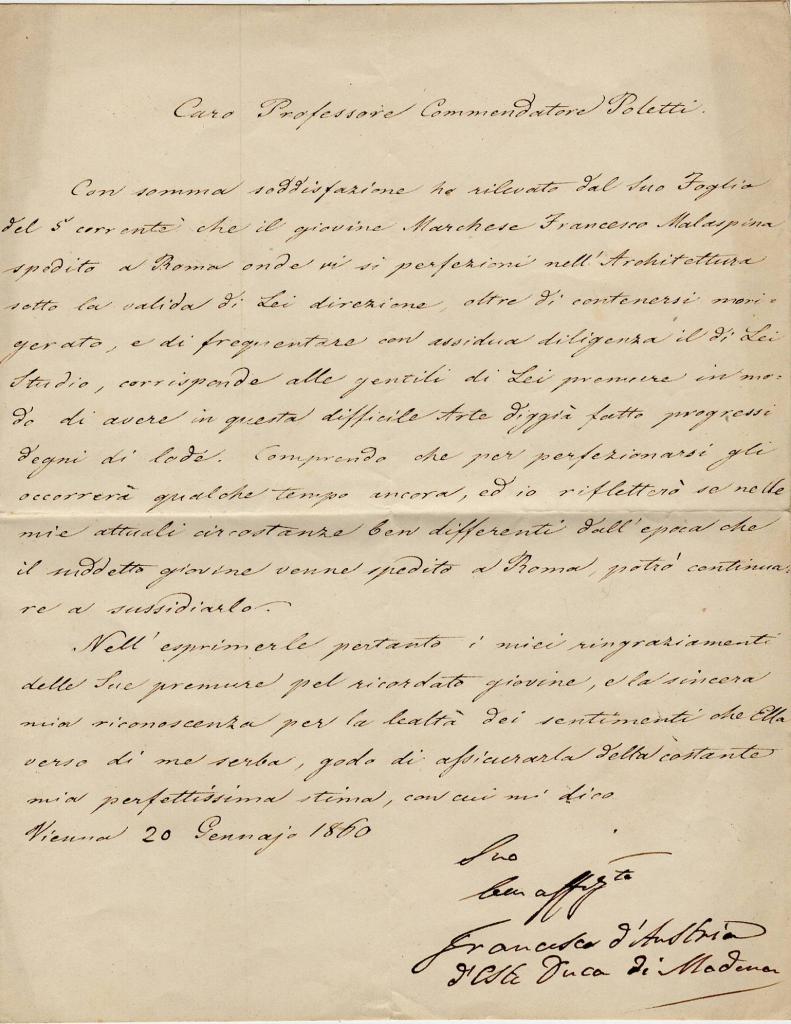 Caro Professore Commendatore Poletti.
Con somma soddisfazione ho rilevato dal Suo Foglio
del 5 corrente che il giovine Marchese Francesco Malaspina
spedito a Roma onde vi si perfezioni nell'Architettura
sotto la valida di Lei direzione, oltre di contenersi mori-
gerato, e di frequentare con assidua diligenza il di Lei
Studio, corrisponde alle gentili di Lei premure in mo-
do di avere in questa difficile Arte diggià fatto progressi
degni di lode. Comprendo che per perfezionarsi gli
occorrerà qualche tempo ancora, ed io rifletterò se nelle
mie attuali circostanze ben differenti dall'epoca che
il suddetto giovine venne spedito a Roma, potrò continua-
re a sussidiarlo.
Nell'esprimerle pertanto i miei ringraziamenti
delle Sue premure pel ricordato giovine, e la sincera
mia riconoscenza per la lealtà dei sentimenti che Ella
verso di me serba, godo di assicurarla della costante
mia perfettissima stima, con cui mi dico
Vienna 20 Gennajo 1860
Suo
ben affez.to
Francesco d'Austria
d'Este Duca di Modena